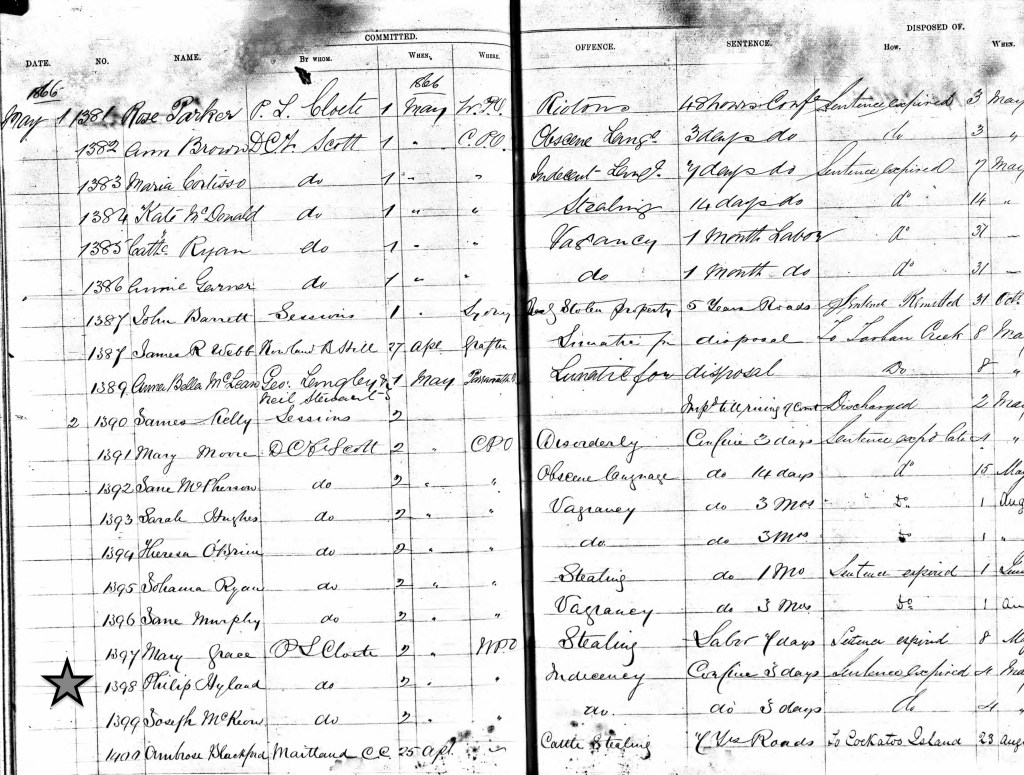 COMMITTED. DISPOSED OF.
DATE. NO. NAME. BY WHOM. WHEN. WHERE. OFFENCE. SENTENCE. HOW. WHEN.
1866 1866
May 1 1381 Rose Parker P. L. Cloete 1 May W.P.O. Riotous 48 hours Conf. Sentence expired 3 May
1382 Ann Brown D C F Scott 1 " C.P.O. Obscene Lang. 3 days do do 3 "
1383 Maria Cortisso do 1 " " Indecent Lang. 7 days do Sentence expired 7 May
1384 Kate McDonald do 1 " " Stealing 14 days do do 14 "
1385 Cathe Ryan do 1 " " Vagrancy 1 Month Labor do 31 "
1386 Annie Garner do 1 " " do 1 Month do do 31 "
1387 John Barrett Sessions 1 " Sydney Stolen property 5 Years Roads Remitted 31 Oct
1387 James R Webb Rowland B Hill 27 Apl Grafton Lunatic for disposal To Tarban Creek 8 May
1389 Anna Bella McLean Geo. Langley & 1 May Lunatic for disposal Do 8 "
Neil Stewart
2 1390 James Kelly Sessions 2 Discharged 2 May
1391 Mary Moore D C F Scott 2 " C.P.O Disorderly Confine 3 days Sentence 4 "
1392 Jane McPherson do 2 " " Obscene language do 14 days do 15 May
1393 Sarah Hughes do 2 " " Vagrancy do 3 Mos Do 1 Aug
1394 Theresa O'Brien do 2 " " do do 3 Mos Do 1 "
1395 Johanna Ryan do 2 " " Stealing do 1 Mo Sentence expired 1 June
1396 Jane Murphy do 2 " " Vagrancy do 3 Mos Do 1 Au
1397 Mary Grace P L Cloete 2 " W.P.O Stealing Labor 7 days Sentence expired 8 M
1398 Philip Hyland do 2 " " Indecency Confine 3 days Sentence expired 4 May
1399 Joseph McKeon do 2 " " do do 3 days do 4 "
1400 Ambrose Blackford Maitland C.C. 25 Apl. Cattle Stealing 7 Yrs Roads To Cockatoo Island 23 Aug